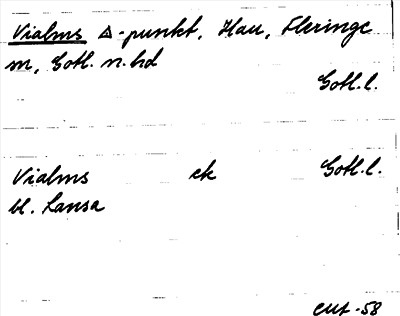 Vialms △-punkt, Hau, Fleringe
m, Gotl. n. hd
Gotl. l.
Vialms ek Gotl. l.
bl. Lansa
EUT -58